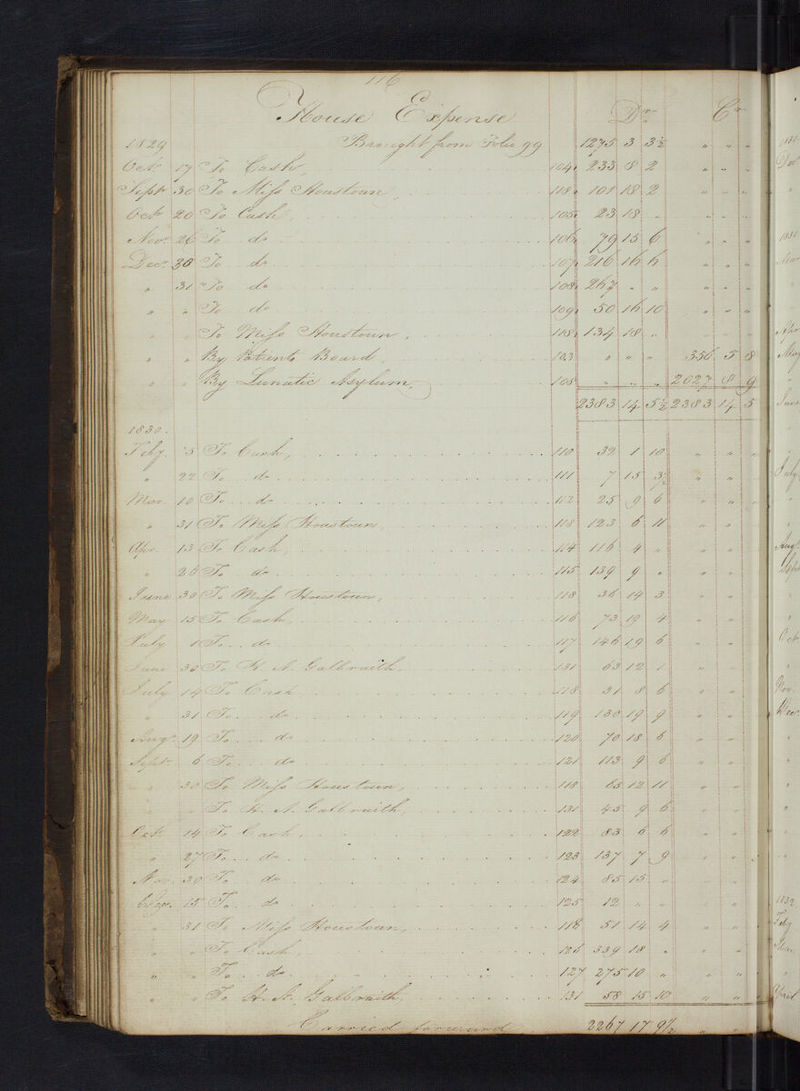 116
House Expense Dr Cr
1829 Brought from Folio 99 1275 3 3½ " " "
Octr 17 To Cash 104 233 8 2 " " "
Septr 30 To Miss Houstoun 118 101 18 2 " " "
Octr 20 To Cash 105 23 18 " " " "
Novr 26 To do 106 79 15 6 " " "
Decr 30 To do 107 216 16 6 " " "
" 31 To do 108 267 " " " " "
" " To do 109 50 16 10 " " "
" " To Miss Houstoun 118 134 18 " " " "
" " By Patients Board 103 " " " 356 5 8
" " By Lunatic Asylum 108 " " " 2027 8 9
2383 14 5½ 2383 14 5
1830
Feby 5 To Cash 110 39 1 10 " " "
" 22 To do 111 7 15 3½ " "
Mar 10 To do 112 25 9 6 " "
" 31 To Miss Houstoun 118 123 6 11 " "
Apr 13 To Cash 114 116 4 " " "
" 26 To do 115 139 9 " " "
June 30 To Miss Houstoun 118 36 14 3 " "
May 15 To Cash 116 73 19 4 " "
July 1 To do 117 146 19 6 " "
June 30 To H. A. Galbraith 131 63 12 1 " "
July 14 To Cash 118 31 8 6 " "
" 31 To do 119 130 19 9 " "
Augt 19 To do 120 70 18 6 " "
Septr 6 To do 121 113 9 6 " "
" 30 To Miss Houstoun 118 65 12 11 " "
" To H. A. Galbraith 131 45 9 6 " "
Octr 14 To Cash 122 83 6 6 " "
" 27 To do 123 137 7 9 " "
Nov 30 To do 124 85 15 " " "
15 To do 125 12 " " " "
" 31 To Miss Houstoun 118 51 14 4 " "
" " To Cash 126 339 18 " " "
" " To do 127 275 10 " " "
" " To H. A. Galbraith 131 58 15 10 " "
Carried forward 2267 17 9½ " "